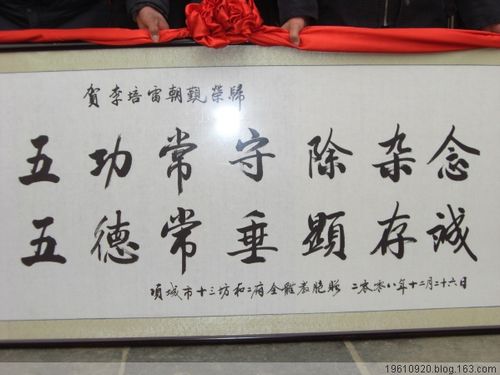 賀李培宙朝覲榮歸
五功常守除杂念
五德常垂顯存誠
項城市十三坊和二府全體教胞賜 二零零八年十二月二十六日
19610920.blog.163.com